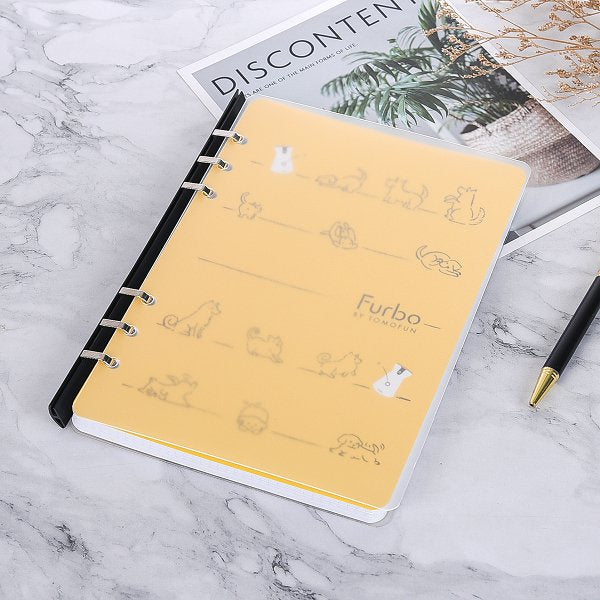 DISCONTENT
IS ARE ONE OF THE MAIN FORMS OF LIFE
Furbo
BY TOMOFUN